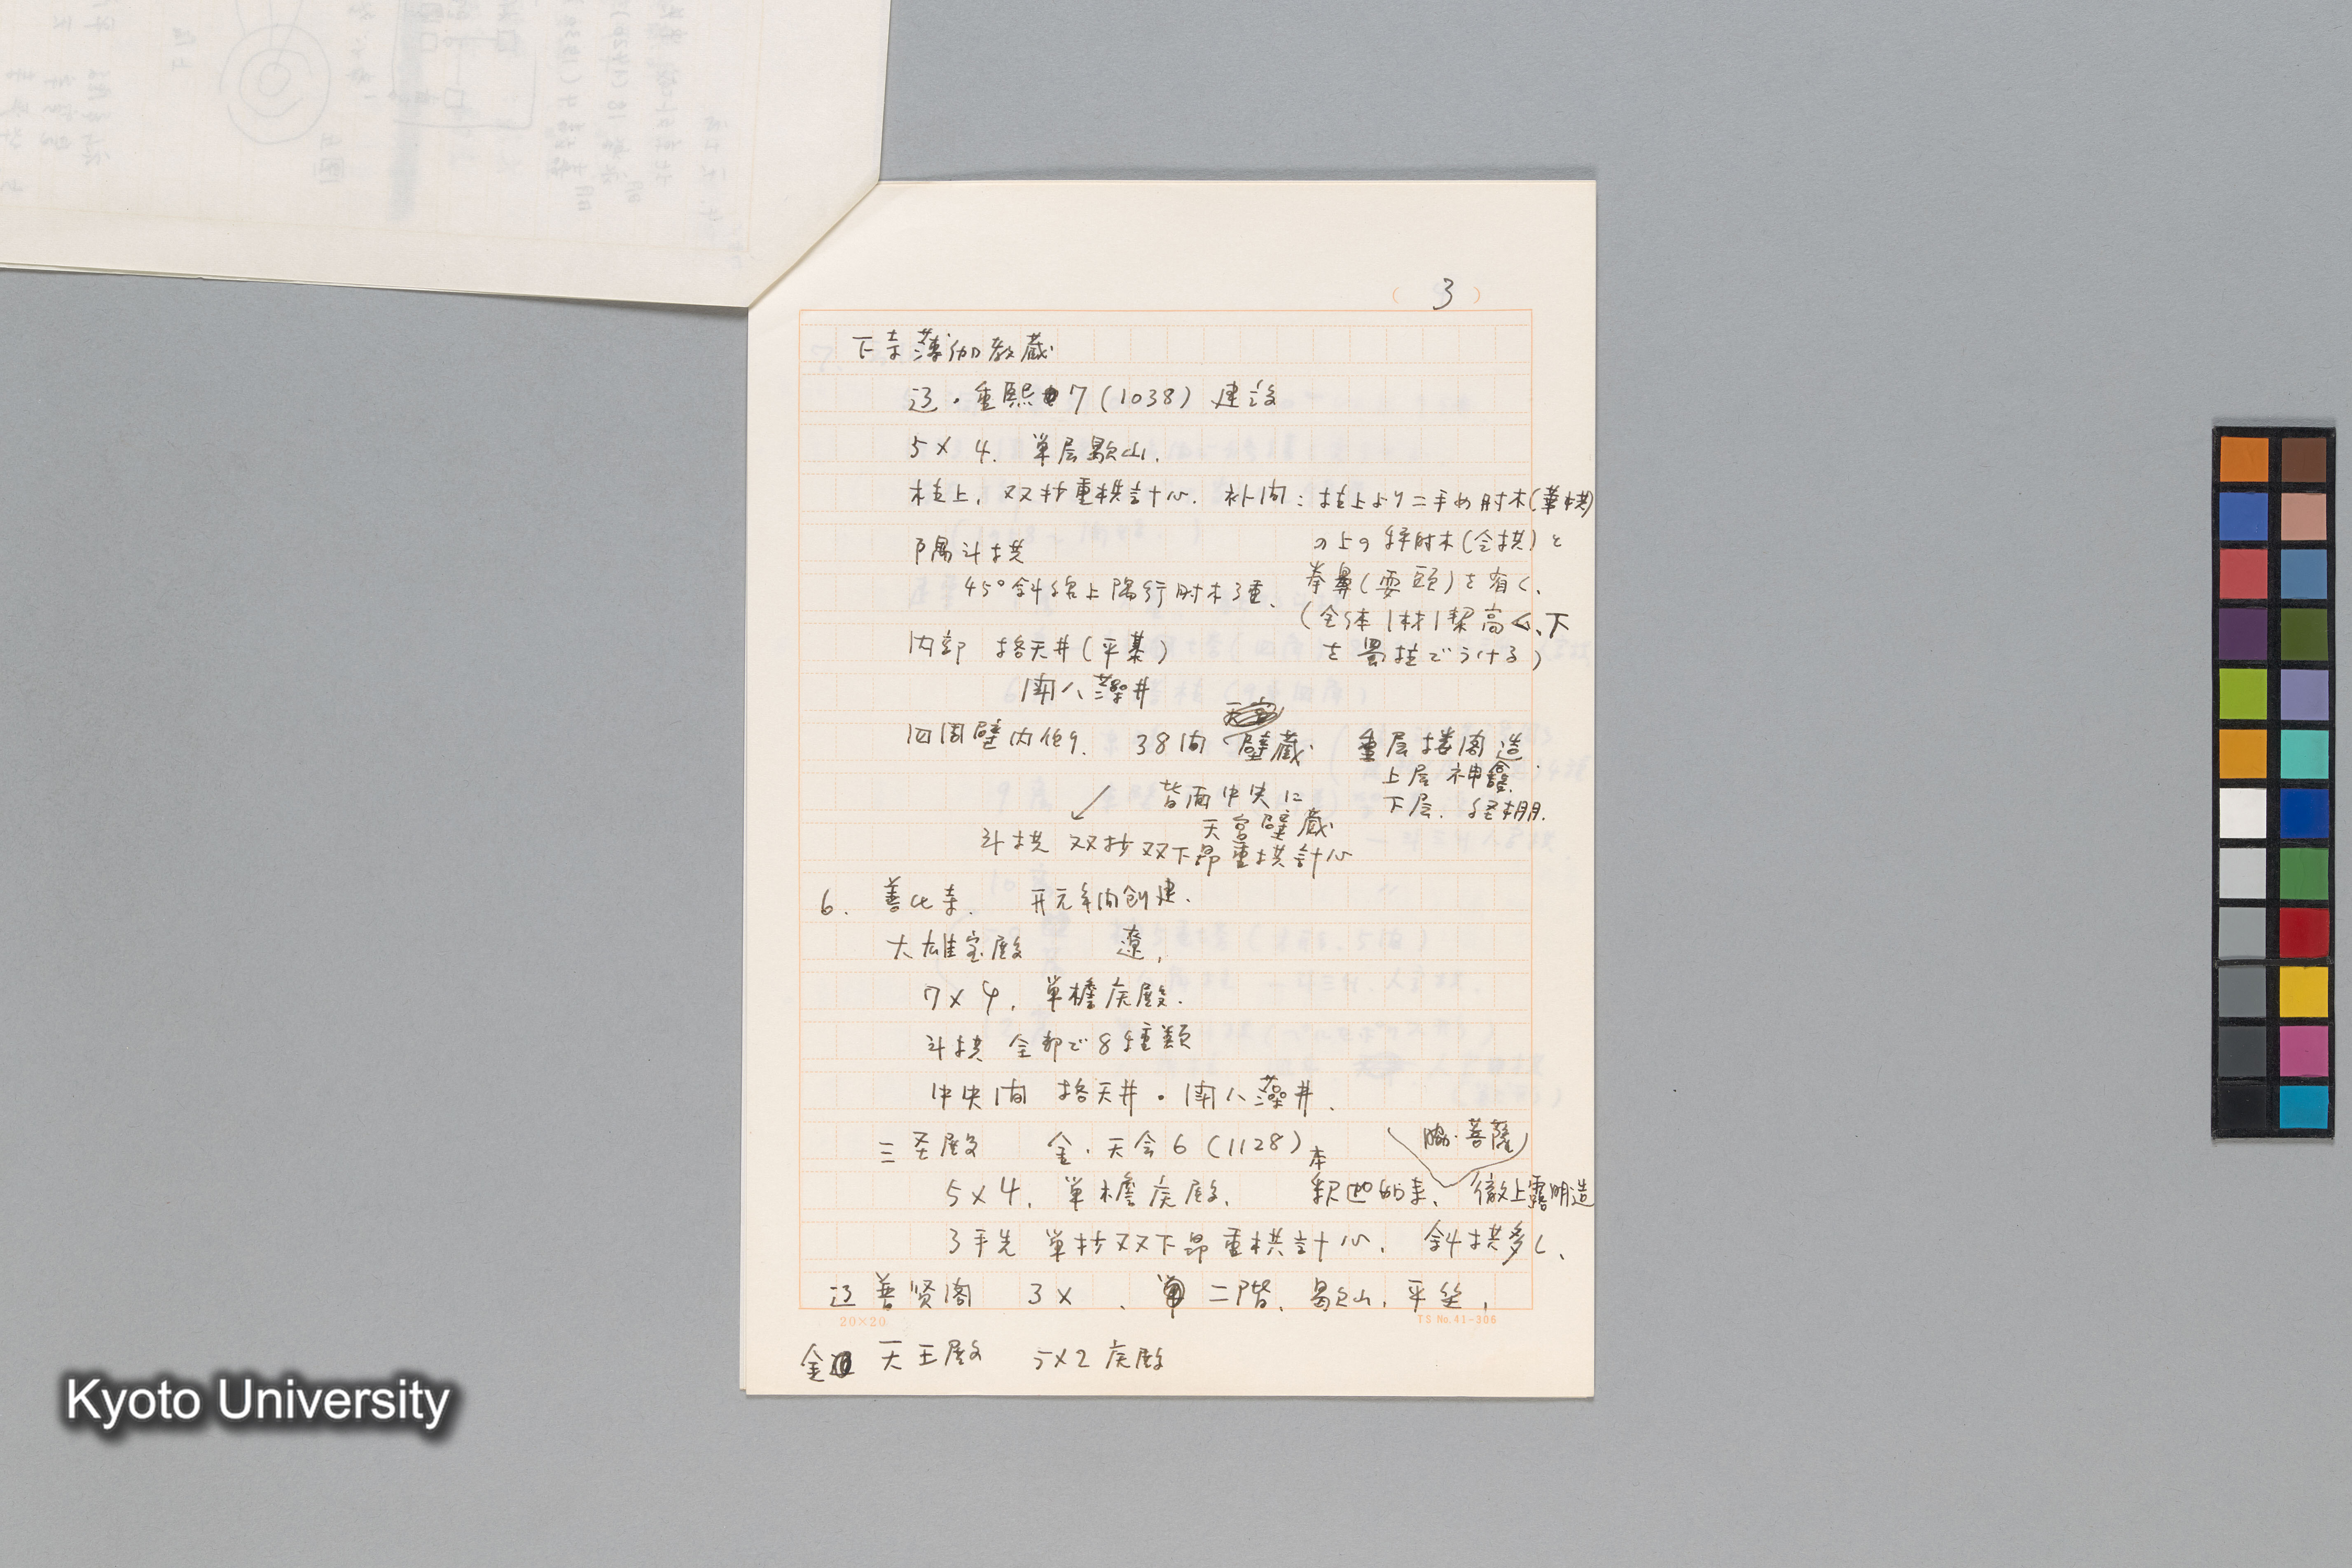 (3)
下寺薄伽教蔵
辽・重熙7(1038)建設
5×4. 単层歇山.
柱上,双抄重栱計心. 补间:柱上より二手め肘木(華栱)
の上の秤肘木(令拱)と
拳鼻(耍頭)を有く、
(全体1材1栔高く、下
を蜀柱でうける)
隅斗拱
45°斜線上隅行肘木3重、
内部 格天井(平棊)
闘八藻井
四周壁内側. 38间 壁蔵 重层楼阁造.
上层 神龕.
下层. 経棚.
背面中央に
天宮壁蔵
斗拱 双抄双下昂重拱計心
6. 善化寺. 开元年间创建.
大雄宝殿 遼,
7×4, 単檐庑殿.
斗拱 全部で8種類
中央间 格天井・闘八藻井、
三圣殿 金・天会6(1128)
脇・菩薩
5×4, 単檐庑殿、 本 釈迦如来、徹上露明造
3手先 単抄双下昂重栱計心、 斜拱多く、
辽 普贤阁 3× 、二階、歇山,平坐,
金 天王殿 5×2 庑殿
20×20
TS No.41-306
Kyoto University